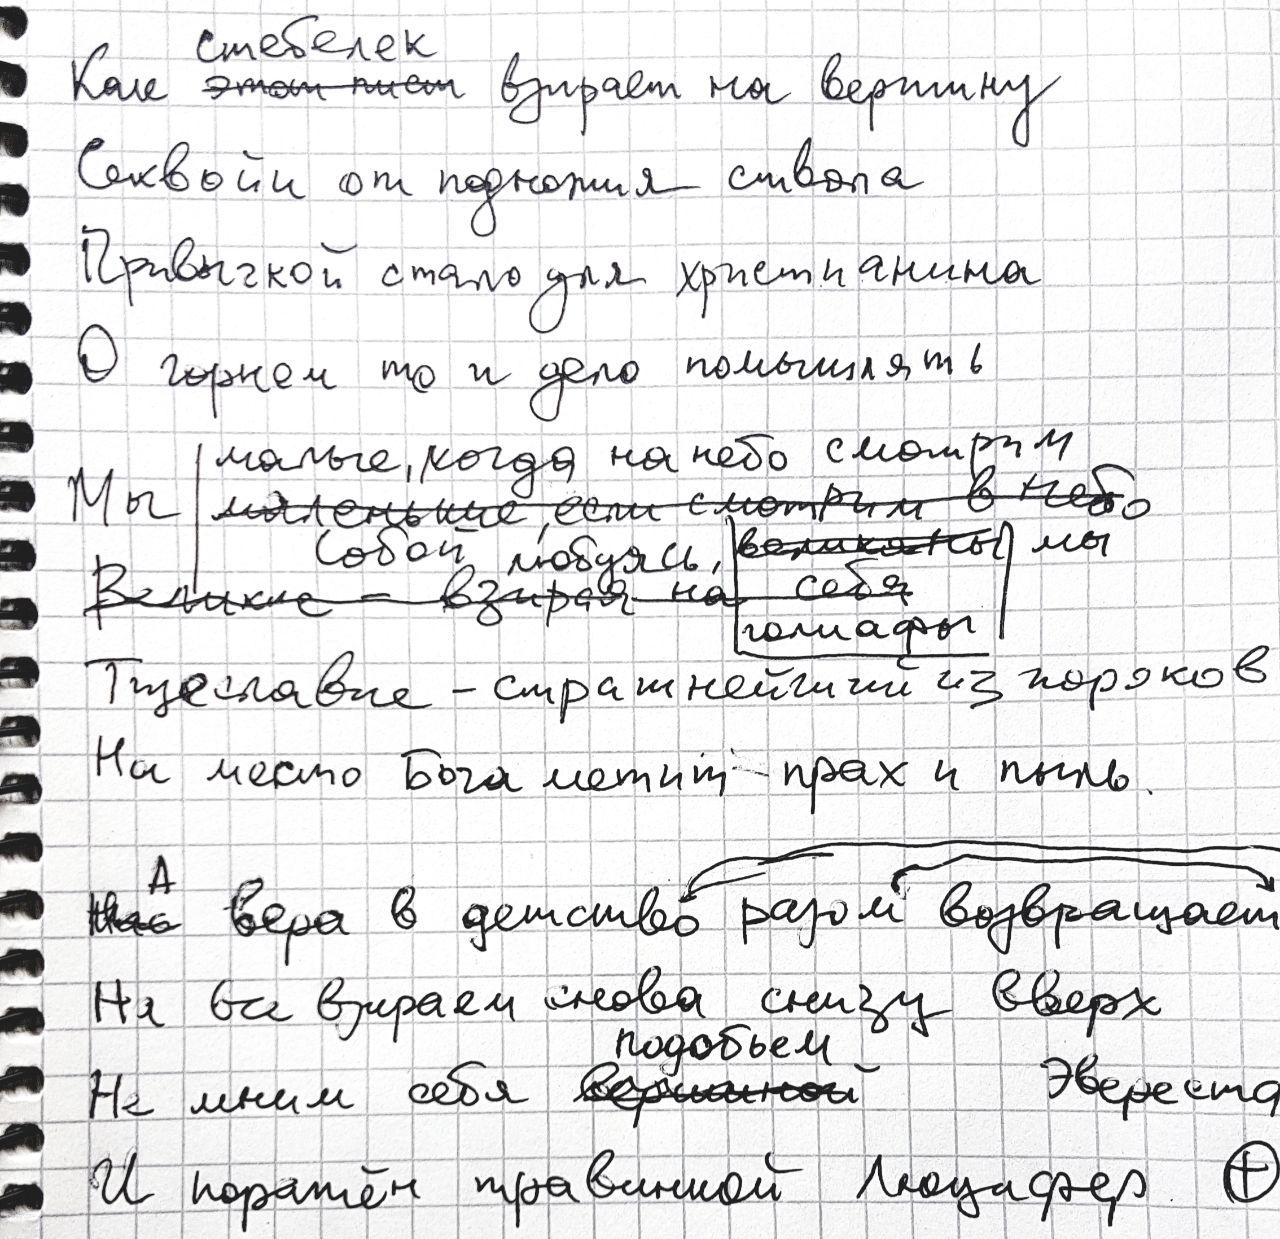 стебелек
Как этот лист взирает на вершину
Секвойи от подножия ствола
Привычкой стало для христианина
О горнем то и дело помышлять
малые, когда на небо смотрим
Мы маленькие, если смотрим в небо
Собой любуясь, великаны мы
Великие – взирая на себя
голиафы
Тщеславие – страшнейший из пороков
На место Бога метит прах и пыль.
А
Нас вера в детство разом возвращает
На все взираем снова снизу вверх
подобьем
Не мним себя вершиной Эвереста
И поражён травинкой Люцифер